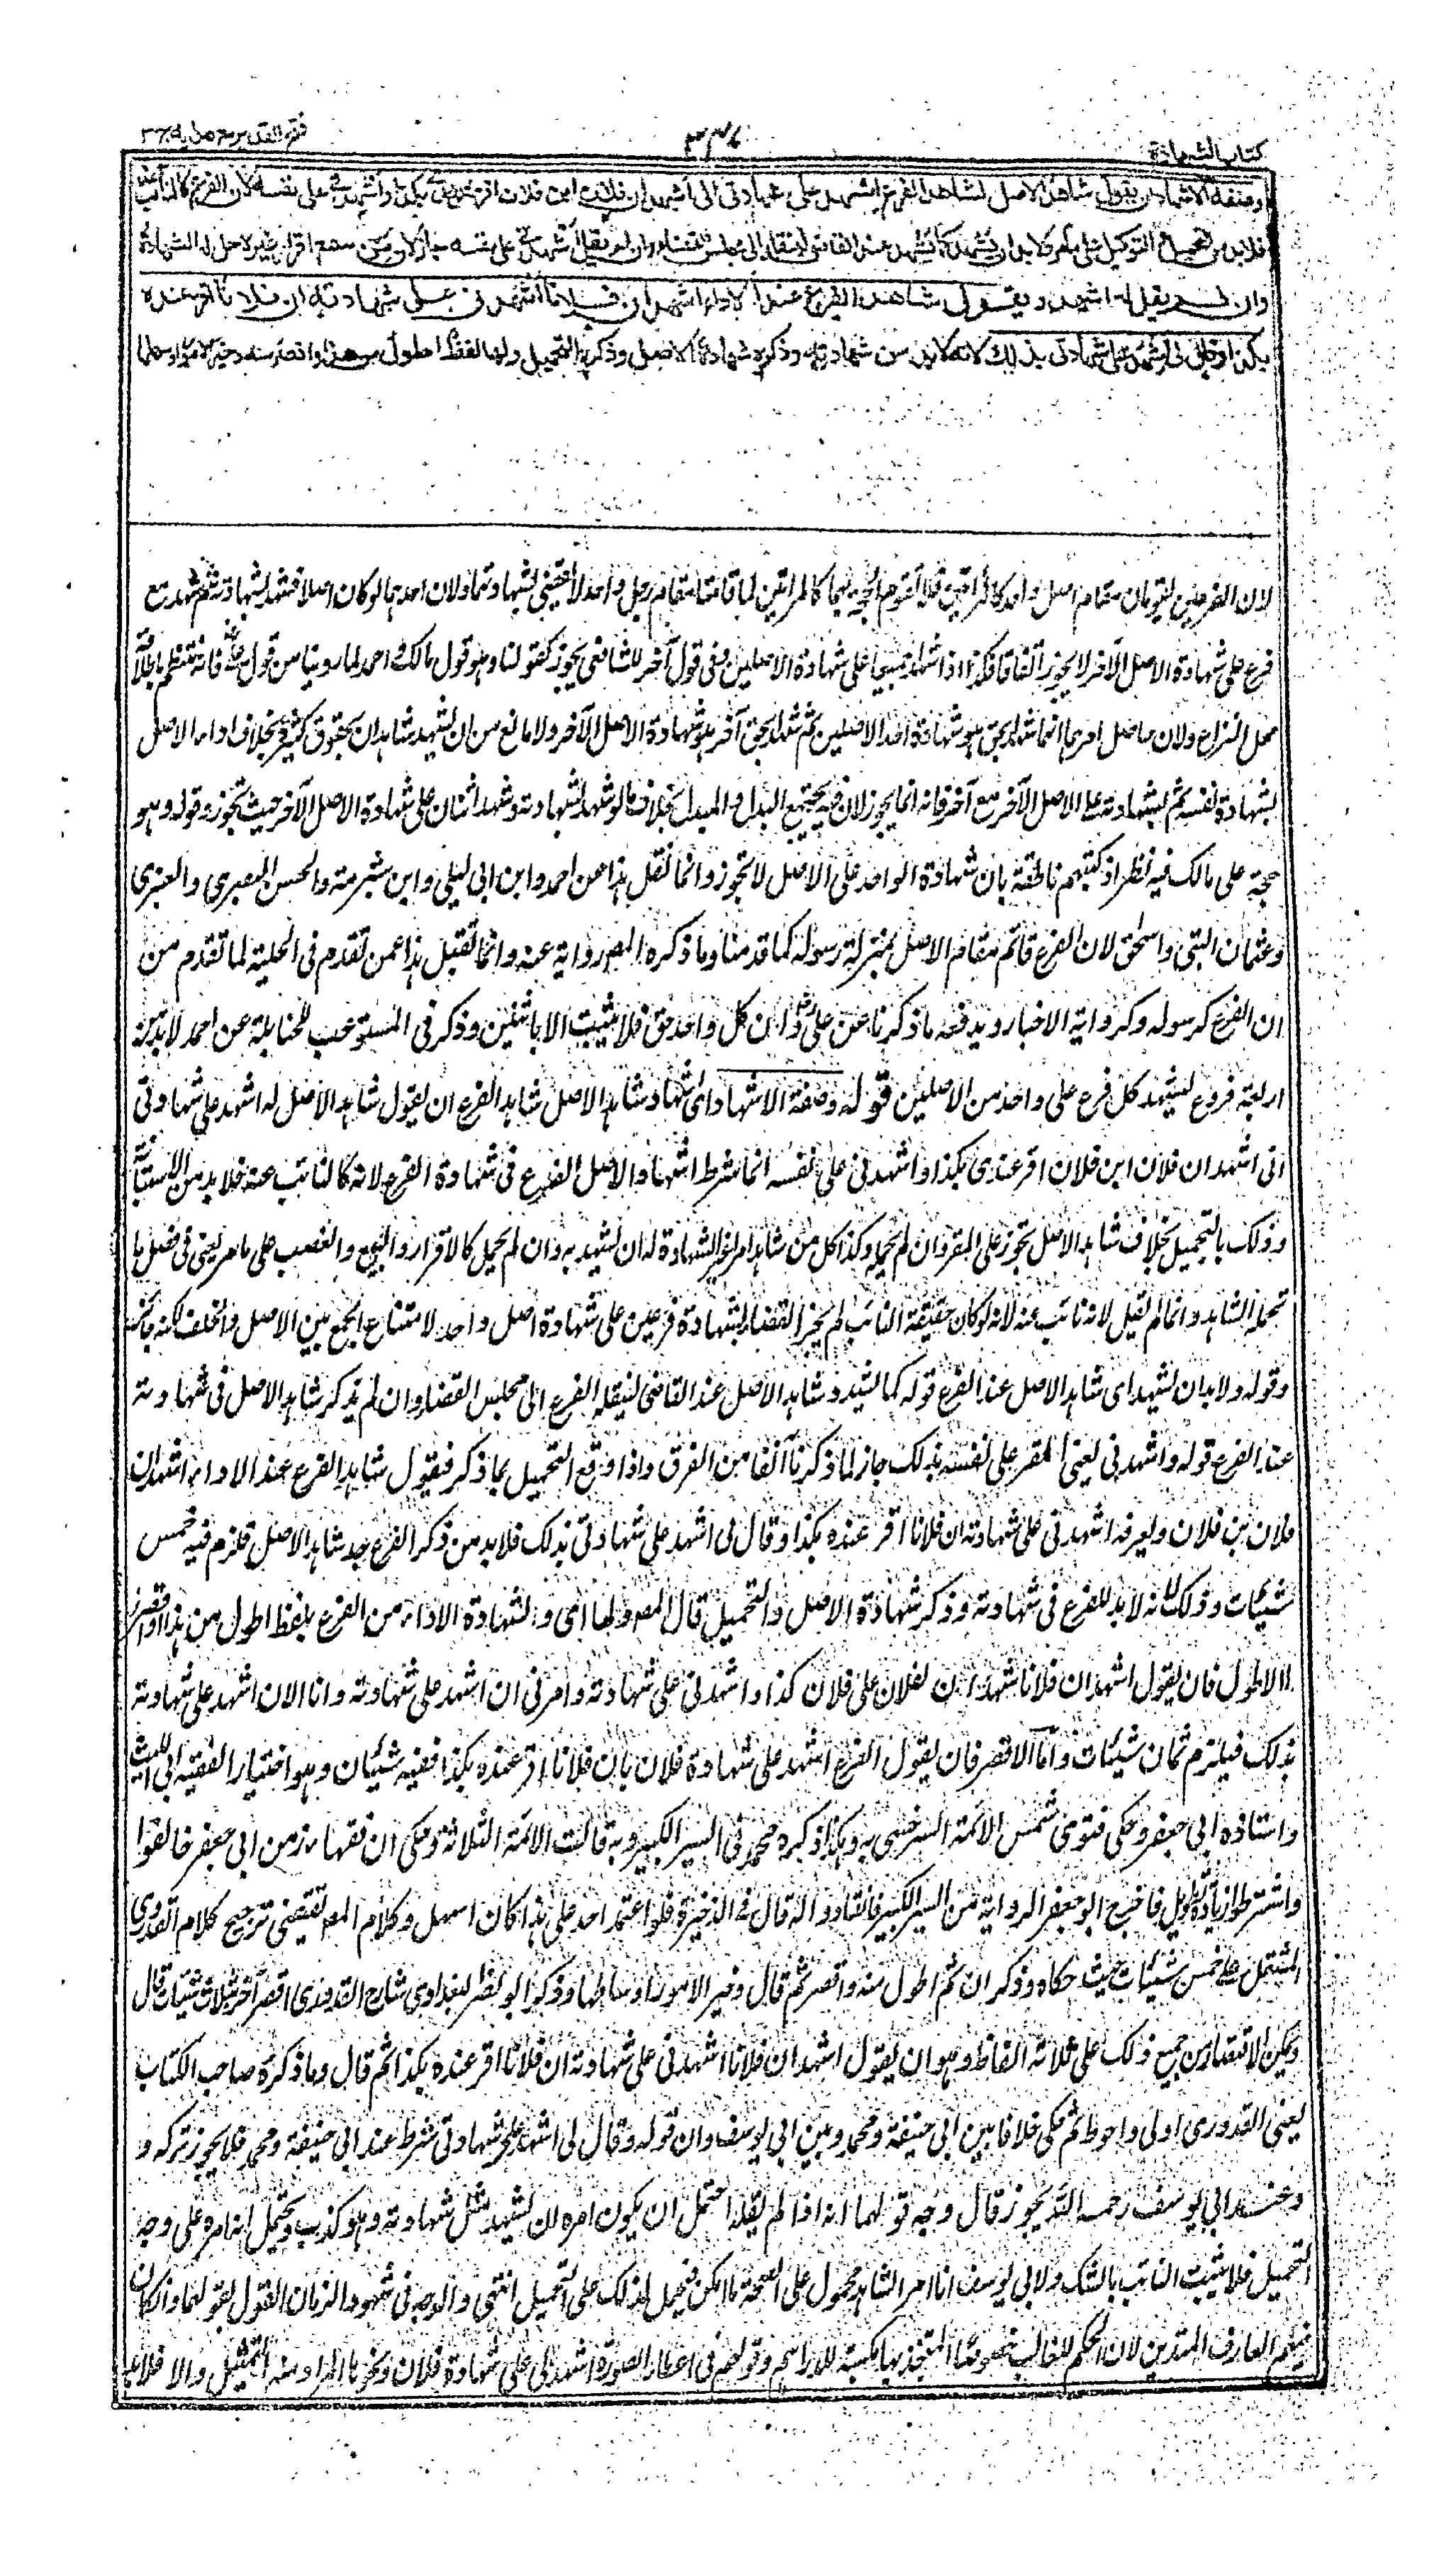 كتاب الشهادة
٣٣٧
فتح القدير مع هدايه ج٣
وصفة الاشهاد ان يقول شاهد الاصل لشاهد الفرع اشهد على شهادتى انى اشهد ان فلان ابن فلان اقر عندى بكذا واشهدنى على نفسه لان الفرع كالنائب عنه
فلابد من التحميل و التوكيل على ما مر ولا بد ان يشهد كما يشهد عند القاضى لينقله الى مجلس القضاء وان لم يقل اشهدنى على نفسه جاز لان من سمع اقرار غيره حل له الشهادة
وان لم يقل له اشهد ويقول شاهد الفرع عند الاداء اشهد ان فلانا اشهدنى على شهادته ان فلانا اقر عنده
بكذا وقال لى اشهد على شهادتى بذلك لانه لابد من شهادته وذكره شهادة الاصل وذكره التحميل ولها لفظ اطول من هذا واقصر منه وخير الامور اوسطها
لان الفرعين ليقومان مقام اصل واحد كالمرأتين فلا تقوم الحجة بهما كالمراتين لما قامتا مقام رجل واحد لا تقضى بشهادتهما ولان احدهما لو كان اصلا فشهد بشهادته ثم شهد مع
فرع على شهادة الاصل الآخر لا يجوز اتفاقا فكذا اذا شهدا جميعا على شهادة الاصلين وفى قول آخر للشافعى يجوز كقولنا وهو قول مالك واحمد لما روينا من قول على فانه ينتظم باطلاقه
محل النزاع ولان حاصل امرهما انما شهدا بحق هو شهادة احد الاصلين ثم شهدا بحق آخر هو شهادة الاصل الآخر ولا مانع من ان يشهد شاهدان بحقوق كثيرة بخلاف اداء الاصل
بشهادة نفسه ثم بشهادته على الاصل الآخر مع آخر فانه انما لا يجوز لان فيه يجتمع البدل والمبدل بخلاف ما لو شهد بشهادته وشهد اثنان على شهادة الاصل الآخر حيث تجوز وقوله وهو
حجة على مالك فيه نظر اذ كتبهم ناطقة بان شهادة الواحد على الاصل لا تجوز وانما نقل هذا عن احمد وابن ابى ليلى وابن شبرمة والحسن البصرى والعنبرى
وعثمان البتى واسحق لان الفرع قائم مقام الاصل بمنزلة رسوله كما قدمنا وما ذكره المصـ رواية عنه وانما تقبل هذا عمن تقدم فى الحلية لما تقدم من
ان الفرع كرسوله وكرواية الاخبار ويدفعه ما ذكرنا عن على ولان كل واحد حق فلا يثبت الا باثنين وذكر فى المستوعب للحنابلة عن احمد لا بد من
اربعة فروع ليشهد كل فرع على واحد من الاصلين قوله وصفة الاشهاد اى اشهاد شاهد الاصل شاهد الفرع ان يقول شاهد الاصل له اشهد على شهادتى
انى اشهد ان فلان ابن فلان اقر عندى بكذا واشهدنى على نفسه انما شرط اشهاد الاصل الفرع فى شهادة الفرع لانه كالنائب عنه فلا بد من الاستنابة
وذلك بالتحميل بخلاف شاهد الاصل تجوز على المقر وان لم يحمله وكذا كل من شاهد امرا غير الشهادة له ان يشهد به وان لم يحمل كالاقرار والبيع والغصب على ما مر يعنى فى فصل ما
تحمله الشاهد وانما لم يقل لانه نائب عنه لانه لو كان حقيقة النائب لم يجز القضاء بشهادة فرعين على شهادة اصل واحد لامتناع الجمع بين الاصل والخلف لكنه جائز
وقوله ولابد ان يشهد اى شاهد الاصل عند الفرع قوله كما يشهد شاهد الاصل عند القاضى لينقله الفرع الى مجلس القضاء وان لم يذكر شاهد الاصل فى شهادته
عند الفرع قوله واشهدنى يعنى المقر على نفسه بذلك جاز لما ذكرنا آنفا من الفرق واذا وقع التحميل بما ذكر فيقول شاهد الفرع عند الاداء اشهد ان
فلان بن فلان ويعرفه اشهدنى على شهادته ان فلانا اقر عنده بكذا وقال لى اشهد على شهادتى بذلك فلا بد من ذكر الفرع بعد شاهد الاصل فلزم فيه خمس
شينات وذلك لانه لا بد للفرع فى شهادته وذكر شهادة الاصل والتحميل قال المصـ ولها اى ولشهادة الاداء من الفرع لفظ اطول من هذا واقصر
اما الاطول فان يقول اشهد ان فلانا شهد ان لفلان على فلان كذا واشهدنى على شهادته وامرنى ان اشهد على شهادته وانا الان اشهد على شهادته
بذلك فيلزم ثمان شينات واما الاقصر فان يقول الفرع اشهد على شهادة فلان بان فلانا اقر عنده بكذا ففيه شينان وهو اختيار الفقيه ابى الليث
واستاذه ابى جعفر وحكى فتوى شمس الائمة السرخسى به وهكذا ذكره محمد فى السير الكبير وبه قالت الائمة الثلاثة وحكى ان فقهاء زمن ابى جعفر خالفوا
واشترطوا زيادة تطويل فاخرج ابو جعفر الرواية من السير الكبير فانقادوا له قال فى الذخيرة فلو اعتمد احد على هذا كان اسهل وكلام المصـ يقتضى ترجيح كلام القدورى
المشتمل على خمس شينات حيث حكاه وذكر ان ثم اطول منه واقصر ثم قال وخير الامور اوساطها وذكر ابو نصر البغدادى شارح القدورى اقصر آخر بثلاث شينات قال
ويمكن الاقتصار من جميع ذلك على ثلاثة الفاظ وهو ان يقول اشهد ان فلانا اشهدنى على شهادته ان فلانا اقر عنده بكذا ثم قال وما ذكره صاحب الكتاب
يعنى القدورى اولى واحوط ثم حكى خلافا بين ابى حنيفة ومحمد وبين ابى يوسف وان قوله وقال لى اشهد على شهادتى شرط عند ابى حنيفة ومحمد فلا يجوز تركه و
وعند ابى يوسف رحمه الله يجوز قال وجه قولهما انه اذا لم يقله احتمل ان يكون امره ان يشهد مثل شهادته وهو كذب ويحتمل انه امره على وجه
التحميل فلا يثبت النائب بالشك ولابى يوسف ان امر الشاهد محمول على الصحة ما امكن فيحمل لذلك على التحميل انتهى والوجه فى شهود الزمان القول بقولهما وان كان
فيهم العارف المتدين لان الحكم للغالب خصوصا المتخذ بها مكسبة للدراهم وقولهم فى اعطاء الصورة اشهد على شهادة فلان ونحوه المراد منه التمثيل والا فلا بد